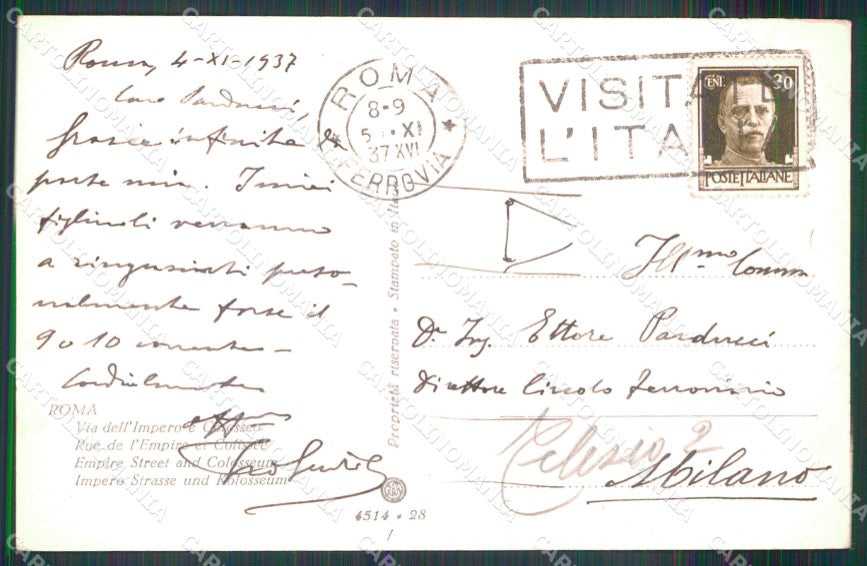 Roma, 4-XI-1937
Caro Parducci,
Grazie infinite da
parte mia. I miei
figliuoli verranno
a ringraziarti perso-
nalmente forse il
9 o 10 corrente -
Cordialmente
ROMA
Via dell'Impero e Colosseo
Rue de l'Empire et Colisée
Empire Street and Colosseum
Impero Strasse und Kolosseum
4514 - 28
Proprietà riservata - Stampato in
ROMA
8-9
5 XI
37 XVI
FERROVIA
VISITATE
L'ITALIA
CENT. 30
POSTE ITALIANE
Ill.mo Comm
Dr. Ing. Ettore Parducci
Direttore Circolo Ferroviario
Telesio 2
Milano
CARTOLINOMANIA